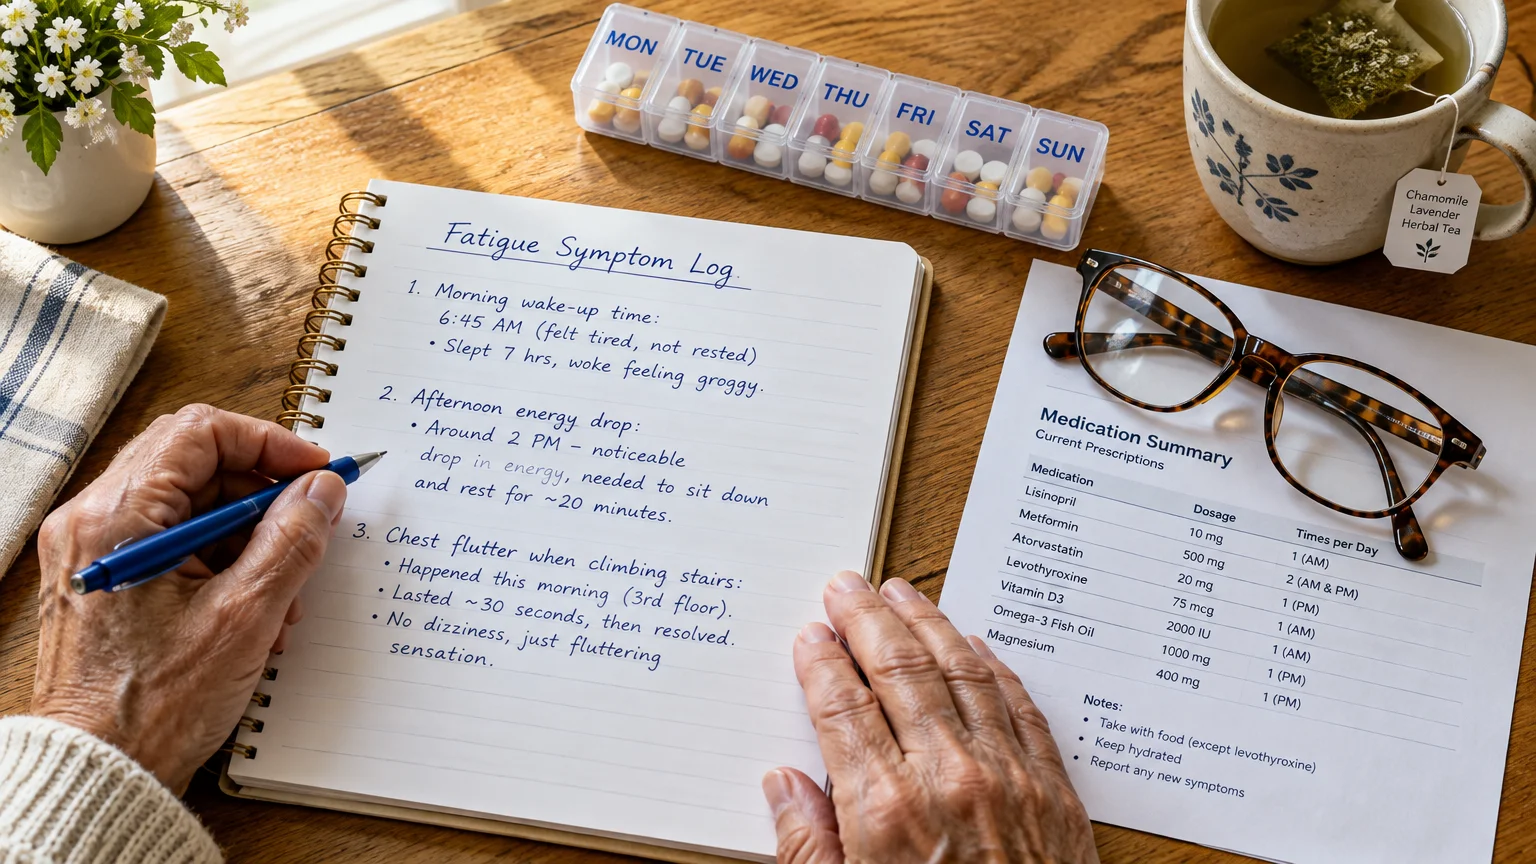 MON
TUE
WED
THU
FRI
SAT
SUN
Chamomile
Lavender
Herbal Tea
Fatigue Symptom Log.
1. Morning wake-up time:
6:45 AM (felt tired, not rested)
• Slept 7 hrs, woke feeling groggy.
2. Afternoon energy drop:
• Around 2 PM – noticeable
drop in energy, needed to sit down
and rest for ~20 minutes.
3. Chest flutter when climbing stairs:
• Happened this morning (3rd floor).
• Lasted ~30 seconds, then resolved.
• No dizziness, just fluttering
sensation.
Medication Summary
Current Prescriptions
Medication Dosage Times per Day
Lisinopril 10 mg 1 (AM)
Metformin 500 mg 2 (AM & PM)
Atorvastatin 20 mg 1 (PM)
Levothyroxine 75 mcg 1 (AM)
Vitamin D3 2000 IU 1 (AM)
Omega-3 Fish Oil 1000 mg 1 (PM)
Magnesium 400 mg 1 (PM)
Notes:
• Take with food (except levothyroxine)
• Keep hydrated
• Report any new symptoms